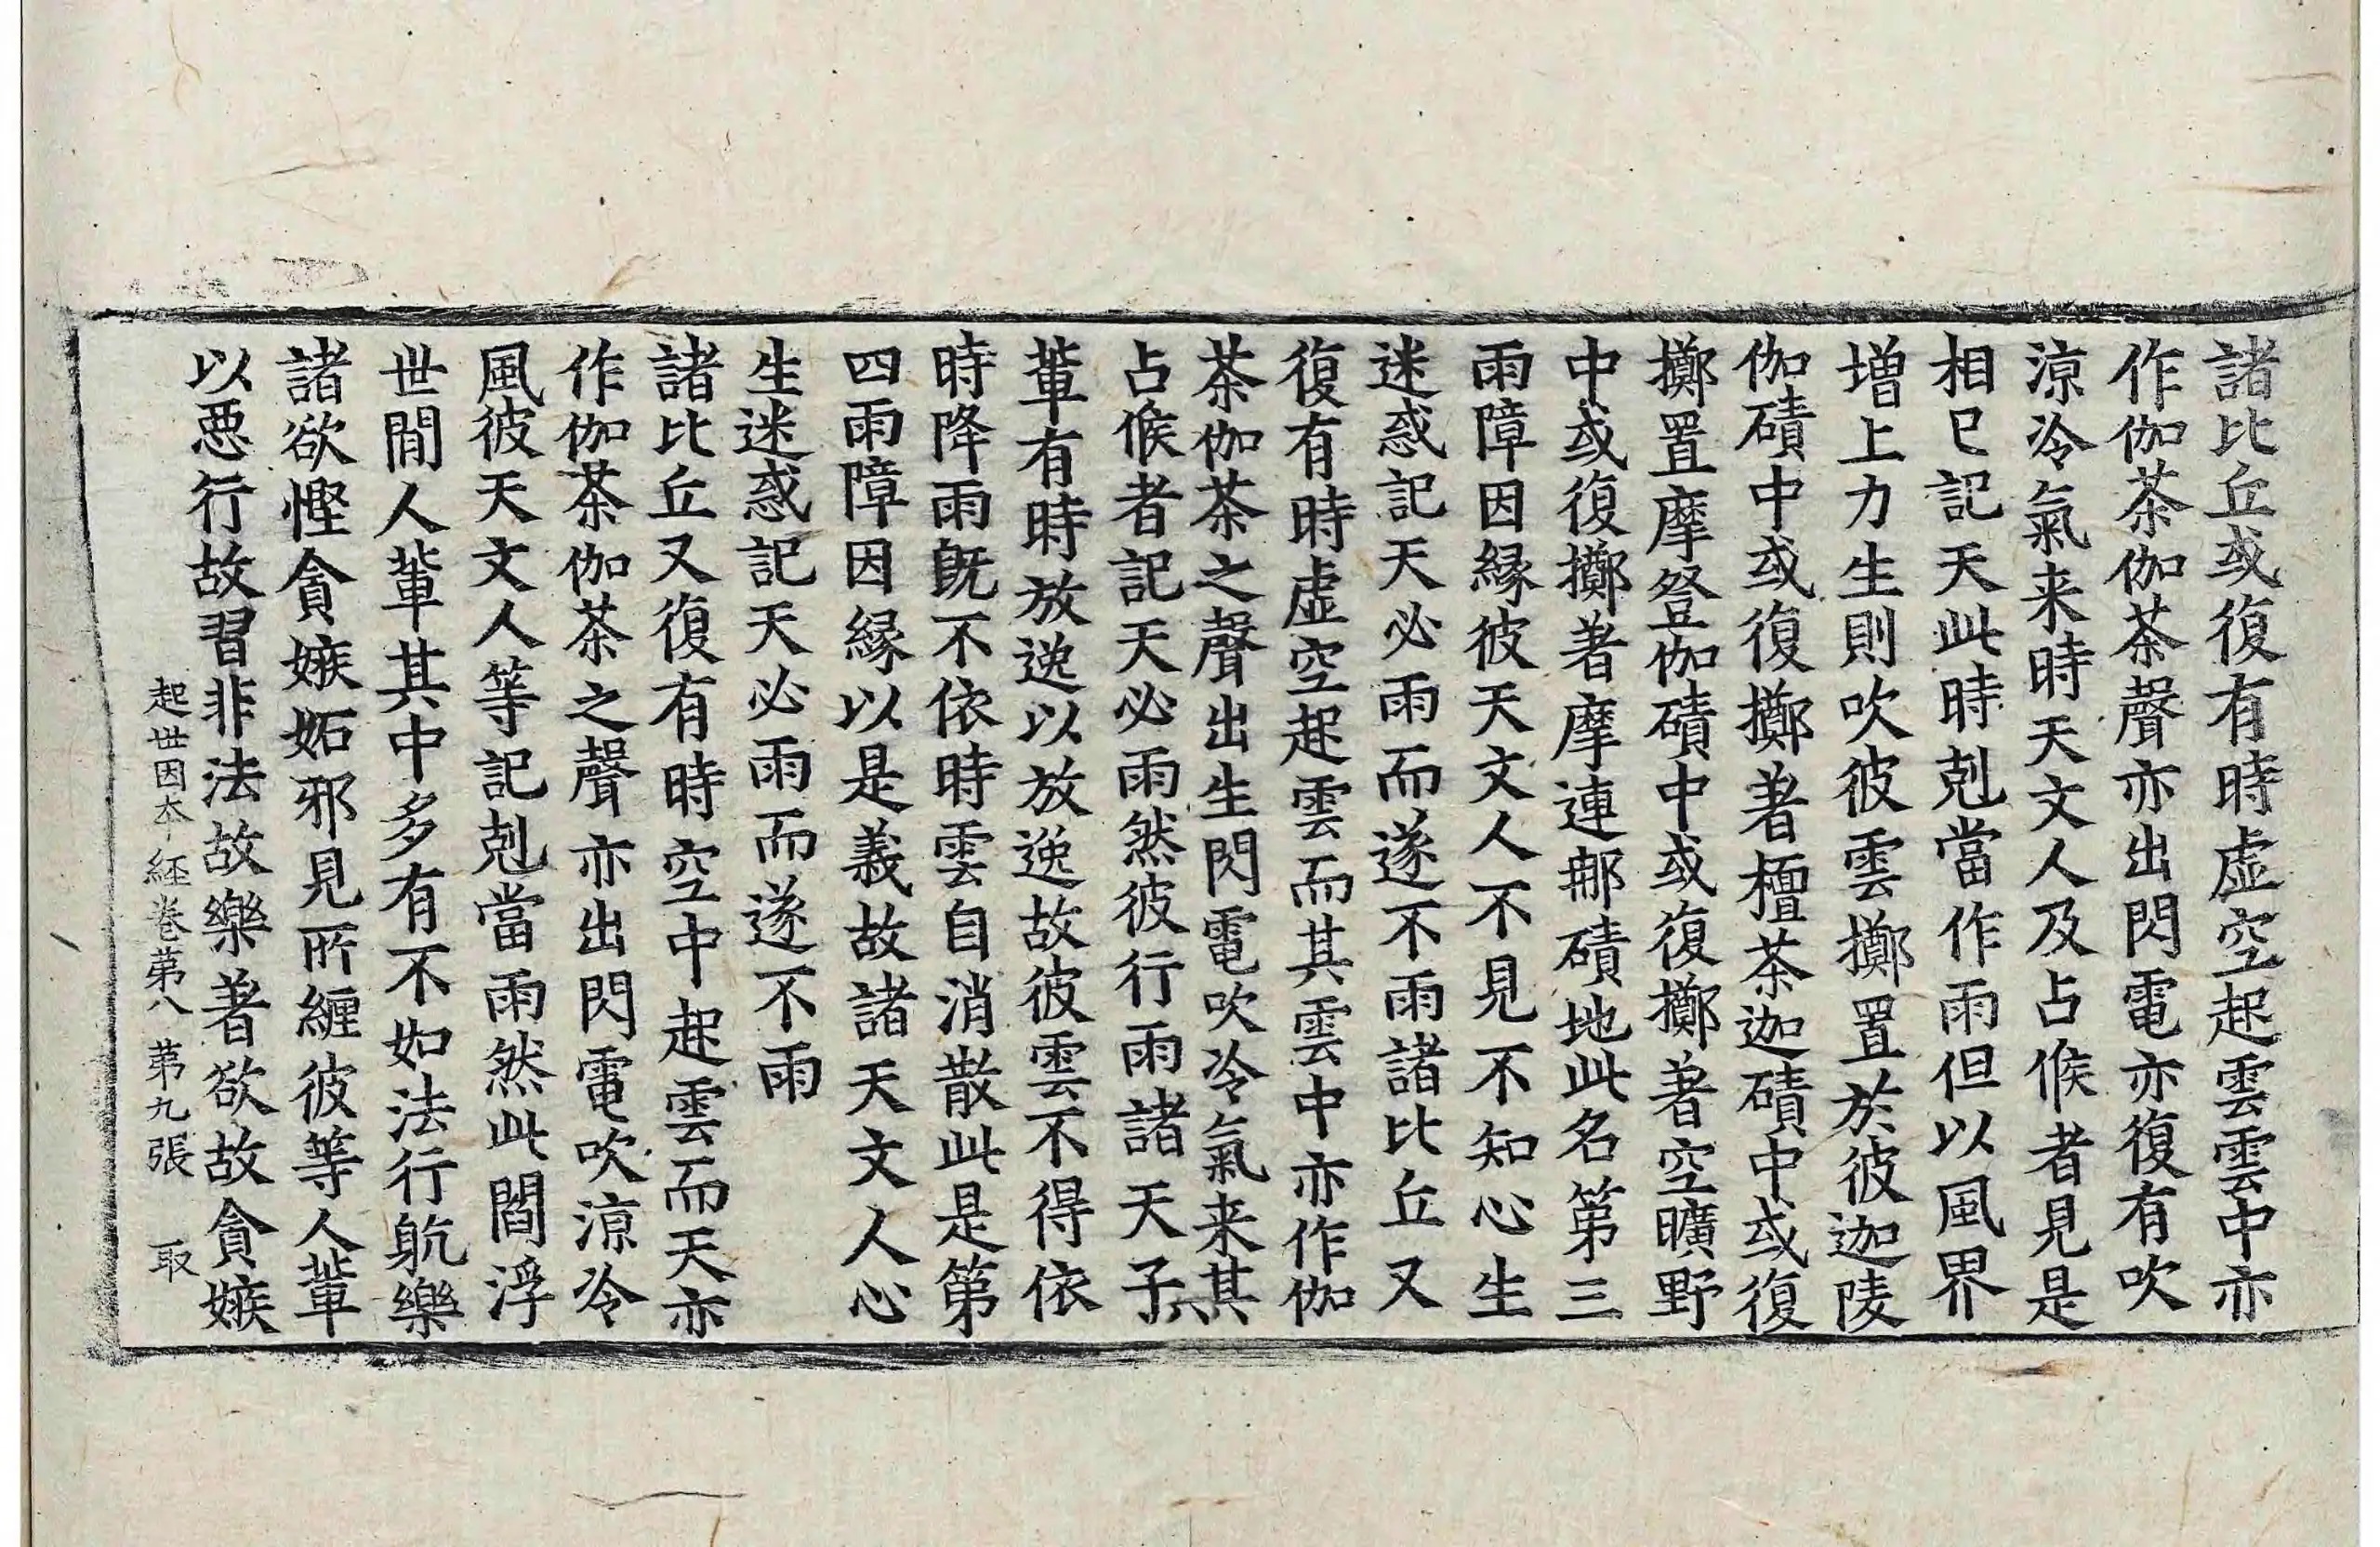 諸比丘或復有時虛空起雲雲中亦
作伽茶伽茶聲亦出閃電亦復有吹
涼冷氣来時天文人及占候者見是
相已記天此時剋當作雨但以風界
增上力生則吹彼雲擲置於彼迦陵
伽磧中或復擲著檀茶迦磧中或復
擲置摩登伽磧中或復擲著空曠野
中或復擲著摩連那磧地此名第三
雨障因緣彼天文人不見不知心生
迷惑記天必雨而遂不雨諸比丘又
復有時虛空起雲而其雲中亦作伽
茶伽茶之聲出生閃電吹冷氣来其
占候者記天必雨然彼行雨諸天子其
輩有時放逸以放逸故彼雲不得依
時降雨旣不依時雲自消散此是第
四雨障因緣以是義故諸天文人心
生迷惑記天必雨而遂不雨
諸比丘又復有時空中起雲而天亦
作伽茶伽茶之聲亦出閃電吹涼冷
風彼天文人等記剋當雨然此閻浮
世間人輩其中多有不如法行躭樂
諸欲慳貪嫉妬邪見所纏彼等人輩
以惡行故習非法故樂著欲故貪嫉
起世因本經卷第八 第九張 取